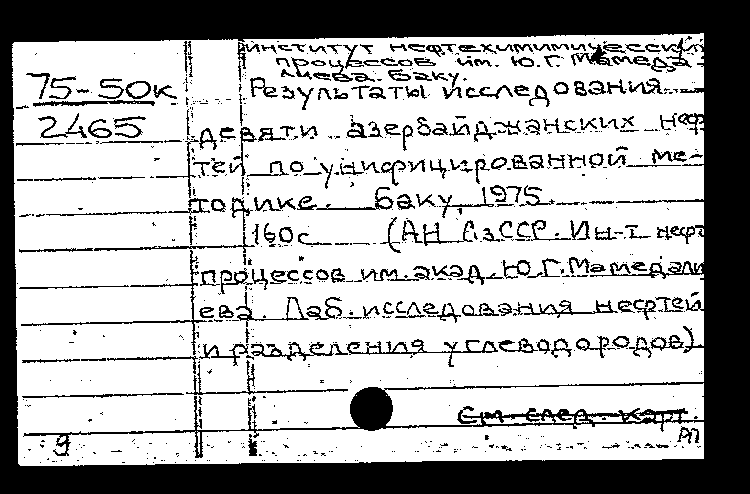 институт нефтехимимических
процессов им. Ю.Г. Мамеда-
лиева. Баку.
75-50к
Результаты исследования
2465
девяти азербайджанских неф
тей по унифицированной ме-
тодике. Баку, 1975.
160с (АН АзССР. Ин-т нефт
процессов им. акад. Ю.Г. Мамедали
ева. Лаб. исследования нефтей
и разделения углеводородов).
См. след. карт.
РП
9